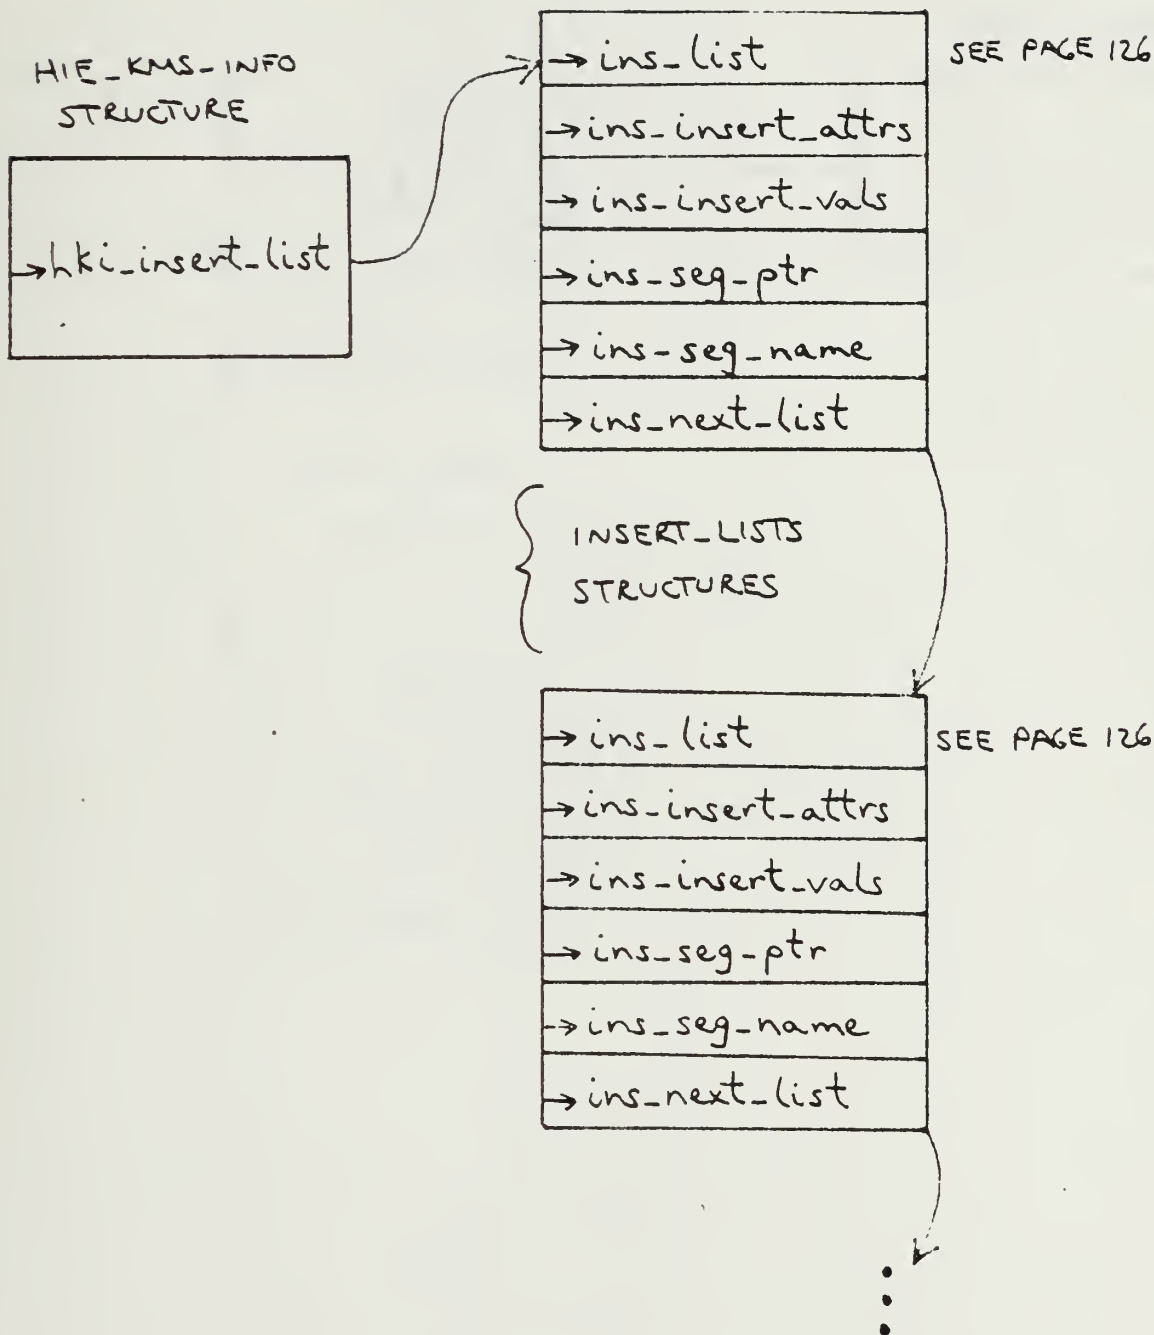 HIE_KMS_INFO
STRUCTURE
→hki_insert_list
→ins_list
SEE PAGE 126
→ins_insert_attrs
→ins_insert_vals
→ins_seg_ptr
→ins_seg_name
→ins_next_list
INSERT_LISTS
STRUCTURES
→ins_list
SEE PAGE 126
→ins_insert_attrs
→ins_insert_vals
→ins_seg_ptr
→ins_seg_name
→ins_next_list